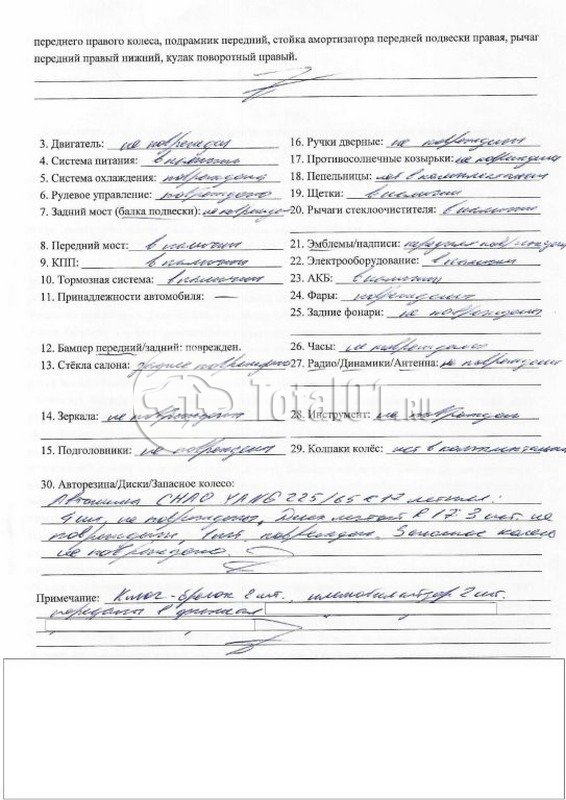 переднего правого колеса, подрамник передний, стойка амортизатора передней подвески правая, рычаг
передний правый нижний, кулак поворотный правый.
3. Двигатель: не поврежден
4. Система питания: в наличии
5. Система охлаждения: повреждена
6. Рулевое управление: повреждено
7. Задний мост (балка подвески): не повреждено
8. Передний мост: в наличии
9. КПП: в наличии
10. Тормозная система: в наличии
11. Принадлежности автомобиля: —
12. Бампер передний/задний: поврежден.
13. Стёкла салона: повреждено
14. Зеркала: не повреждены
15. Подголовники: не повреждены
16. Ручки дверные: не повреждены
17. Противосолнечные козырьки: не повреждены
18. Пепельницы: нет в комплектации
19. Щетки: в наличии
20. Рычаги стеклоочистителя: в наличии
21. Эмблемы/надписи: передняя повреждена
22. Электрооборудование: в наличии
23. АКБ: в наличии
24. Фары: повреждены
25. Задние фонари: не повреждены
26. Часы: не повреждены
27. Радио/Динамики/Антенна: не повреждены
28. Инструмент: не поврежден
29. Колпаки колёс: нет в комплектации
Total01.RU
30. Авторезина/Диски/Запасное колесо:
Автошина CHAO YANG 225/65 R17 летняя:
4 шт. не повреждены, Диск литой R 17: 3 шт. не
повреждены, 1 шт. поврежден. Запасное колесо
не повреждено.
Примечание: Ключ-брелок 2 шт., 2 шт.
переданы в филиал